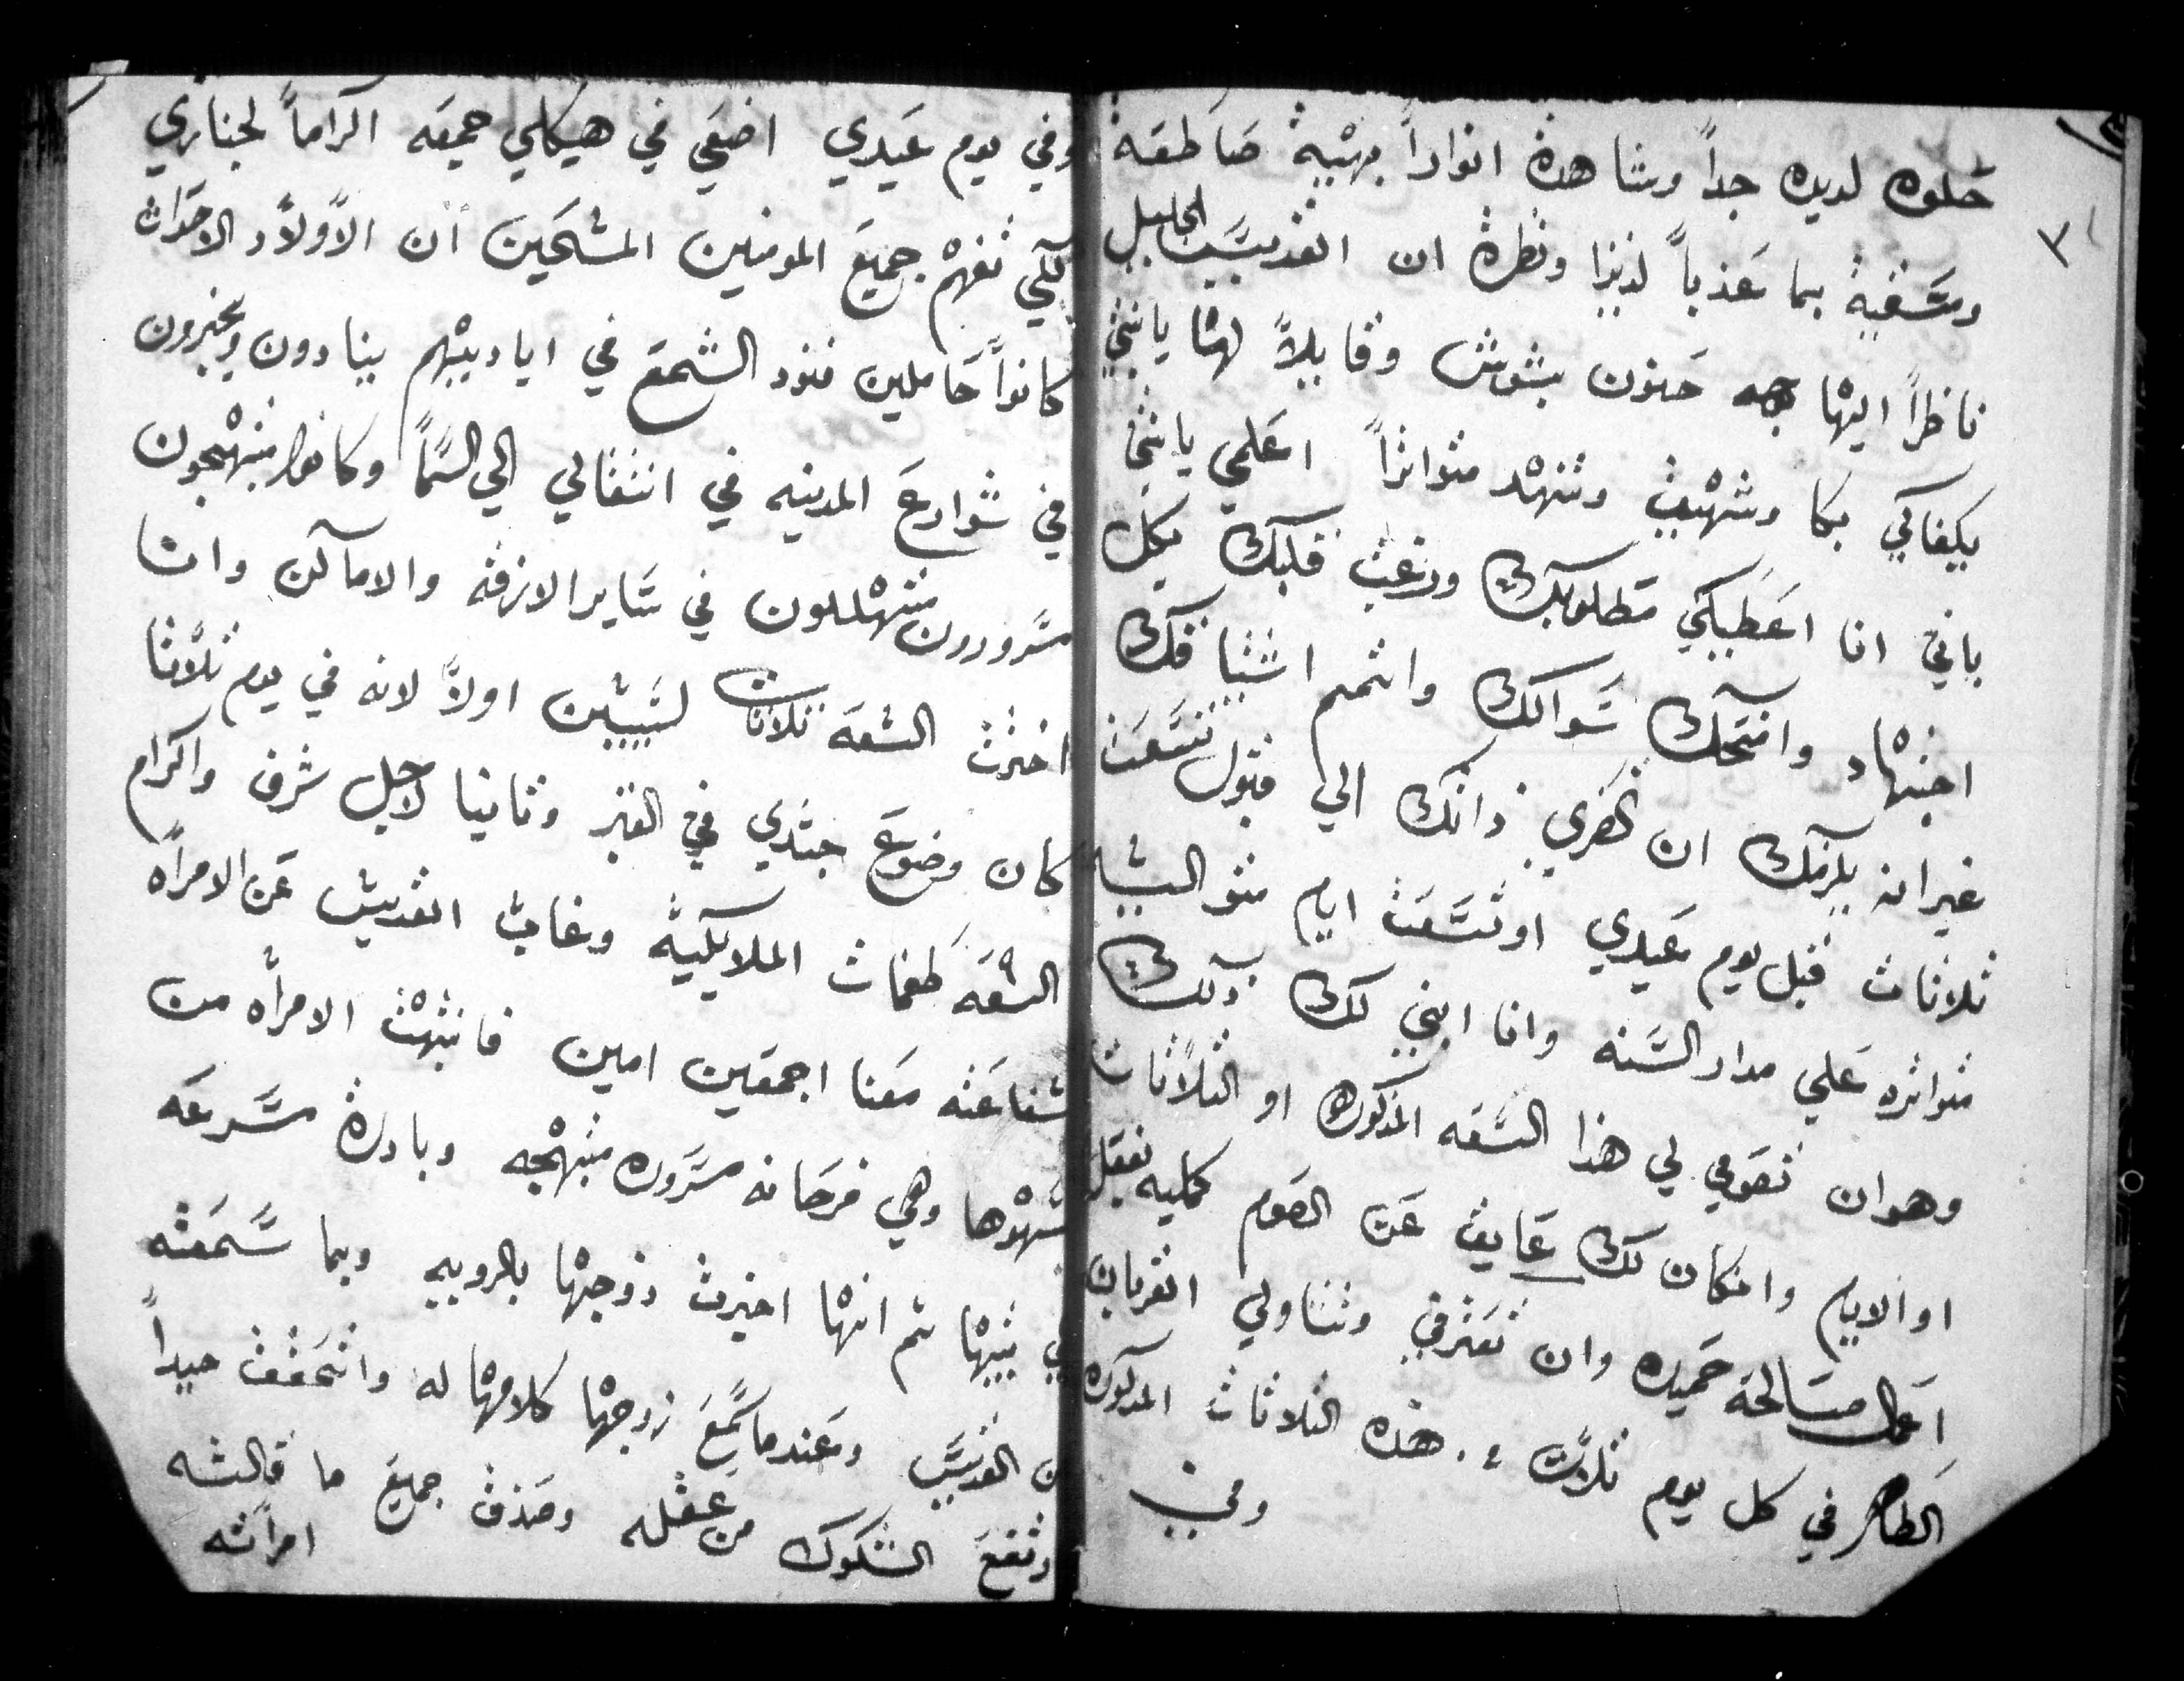 حلوه لديده جداً وشاهدة انواراً بهيية صاطعة
٣
وسقية بما عذباً لذيذا ونظرة ان القديس الجليل
ناظراً اليها بوجه حنون بشوش وقايلاً لها يابنتي
يكفاكي بكا وشهيق وتنهد متواتراً اعلمي يابنتي
باني انا اعطيكي مطلوبك ورغبت قلبك بكل
اجتهاد وامنحك سوالك واتمم اشتياقك
غير انه يلزمك ان ذاتك الي قبول تسعت
ثلاثات قبل يوم عيدي او تسعت ايام متواليه
متواتره علي مدار السنه وانا ابني لك ذلك
وهو ان تصومي لي هذا التسعه المذكوره او الثلاثات
او الايام وانكان لك عايق عن الصوم كمليه بفعل
اعمال صالحة حميده وان تعترفي وتتناولي القربان
الطاهر في كل يوم ثلاث من هذه الثلاثات المذكوره
وفي
وفي يوم عيدي اضعي في هيكلي جميعه اكراماً لجنازي
لكي تفهم جميع المومنين المسيحين ان الاولاد الاحداث
كانوا حاملين فنود الشمع في اياديهم ينادون ويخبرون
في شوارع المدينه في انتقالي الي السما وكانوا مبتهجون
مسرورون متهللون في ساير الازقه والاماكن وانا
اخترت التسعه ثلاثات لسببين اولاً لانه في يوم ثلاثا
كان وضوع جسدي في القبر وثانيا لاجل شرف واكرام
التسعه طغمات الملايكية وغاب القديس عن الامراه
شفاعته معنا اجمعين امين فانتبهت الامراه من
سهوها وهي فرحانه مسروره مبتهجه وبادرة مسرعه
في بيتها ثم انها اخبرت زوجها بالروييه وبما سمعته
من القديس وعندما سمع زوجها كلامها له واتحقق جيداً
وتقع الشكوك من عقله وصدق جميع ما قالته
امراته